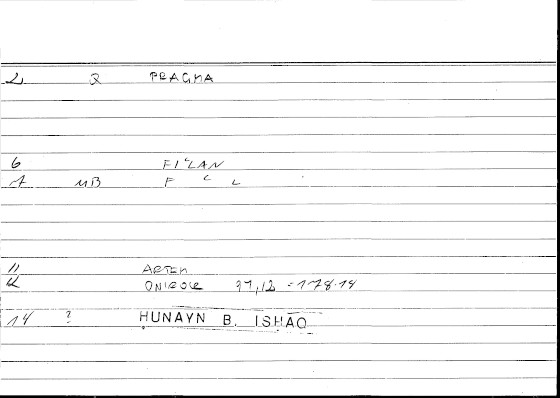 2 R PRAGMA
6 FI'LAN
7 MB F ʿ L
11 ARTEM
12 ONIROCR 97,12 = 178.14
14 ? HUNAYN B. ISHAQ